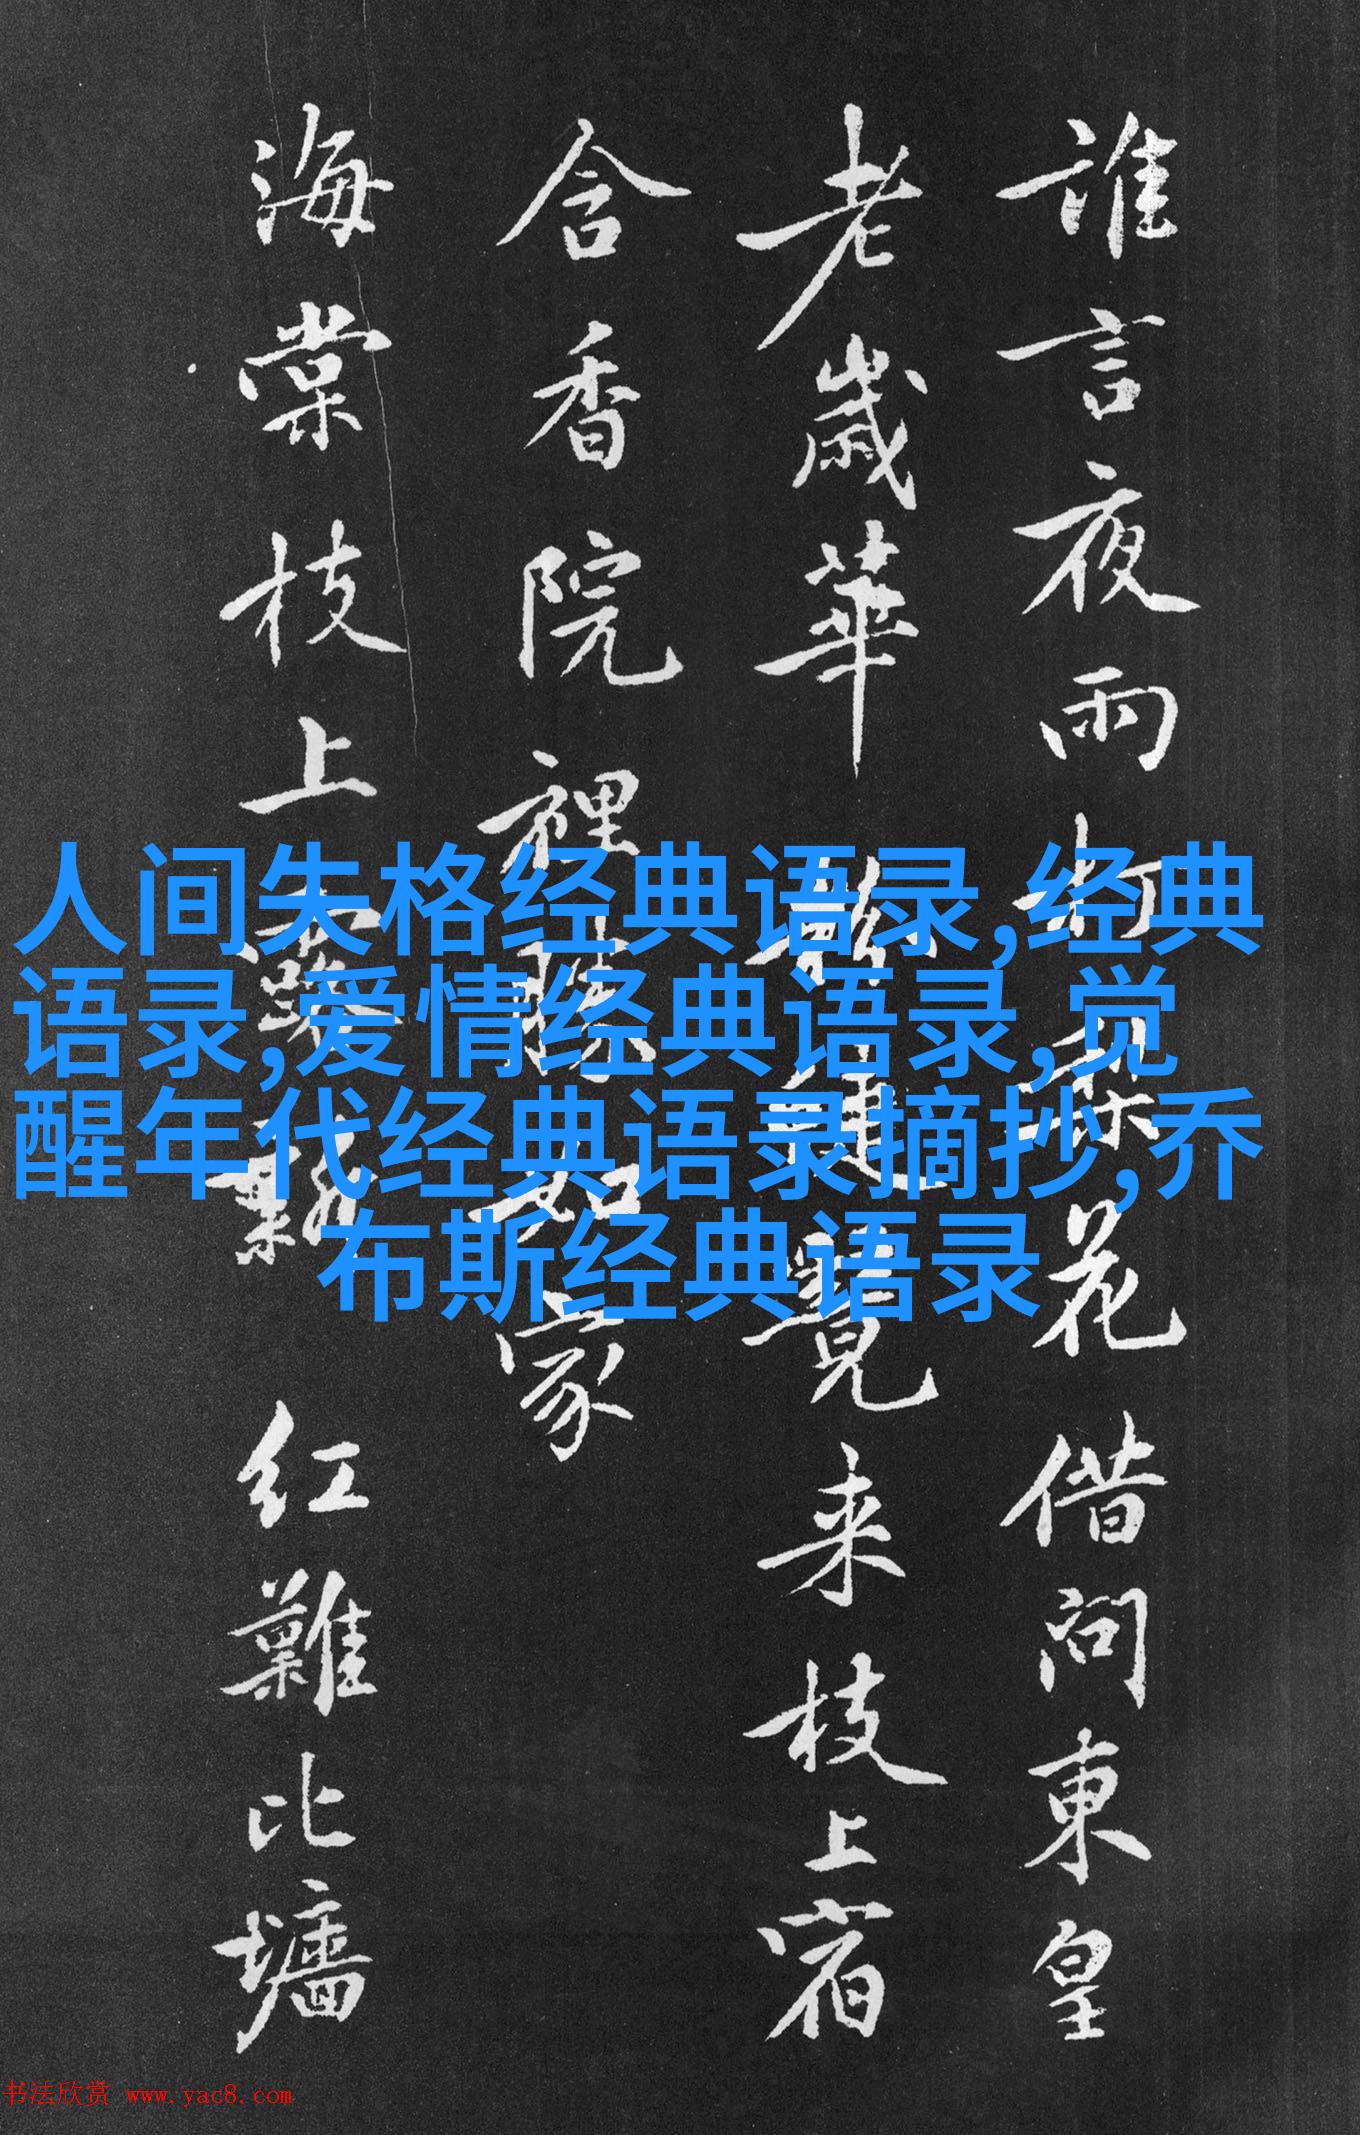 誰言夜雨打梨花借問東皇
老歲華覺来枝上宿
含香院裡家
海棠枝上红難比墻
人间失格经典语录,经典
语录,爱情经典语录,觉
醒年代经典语录摘抄,乔
布斯经典语录
书法欣赏 www.yac8.com